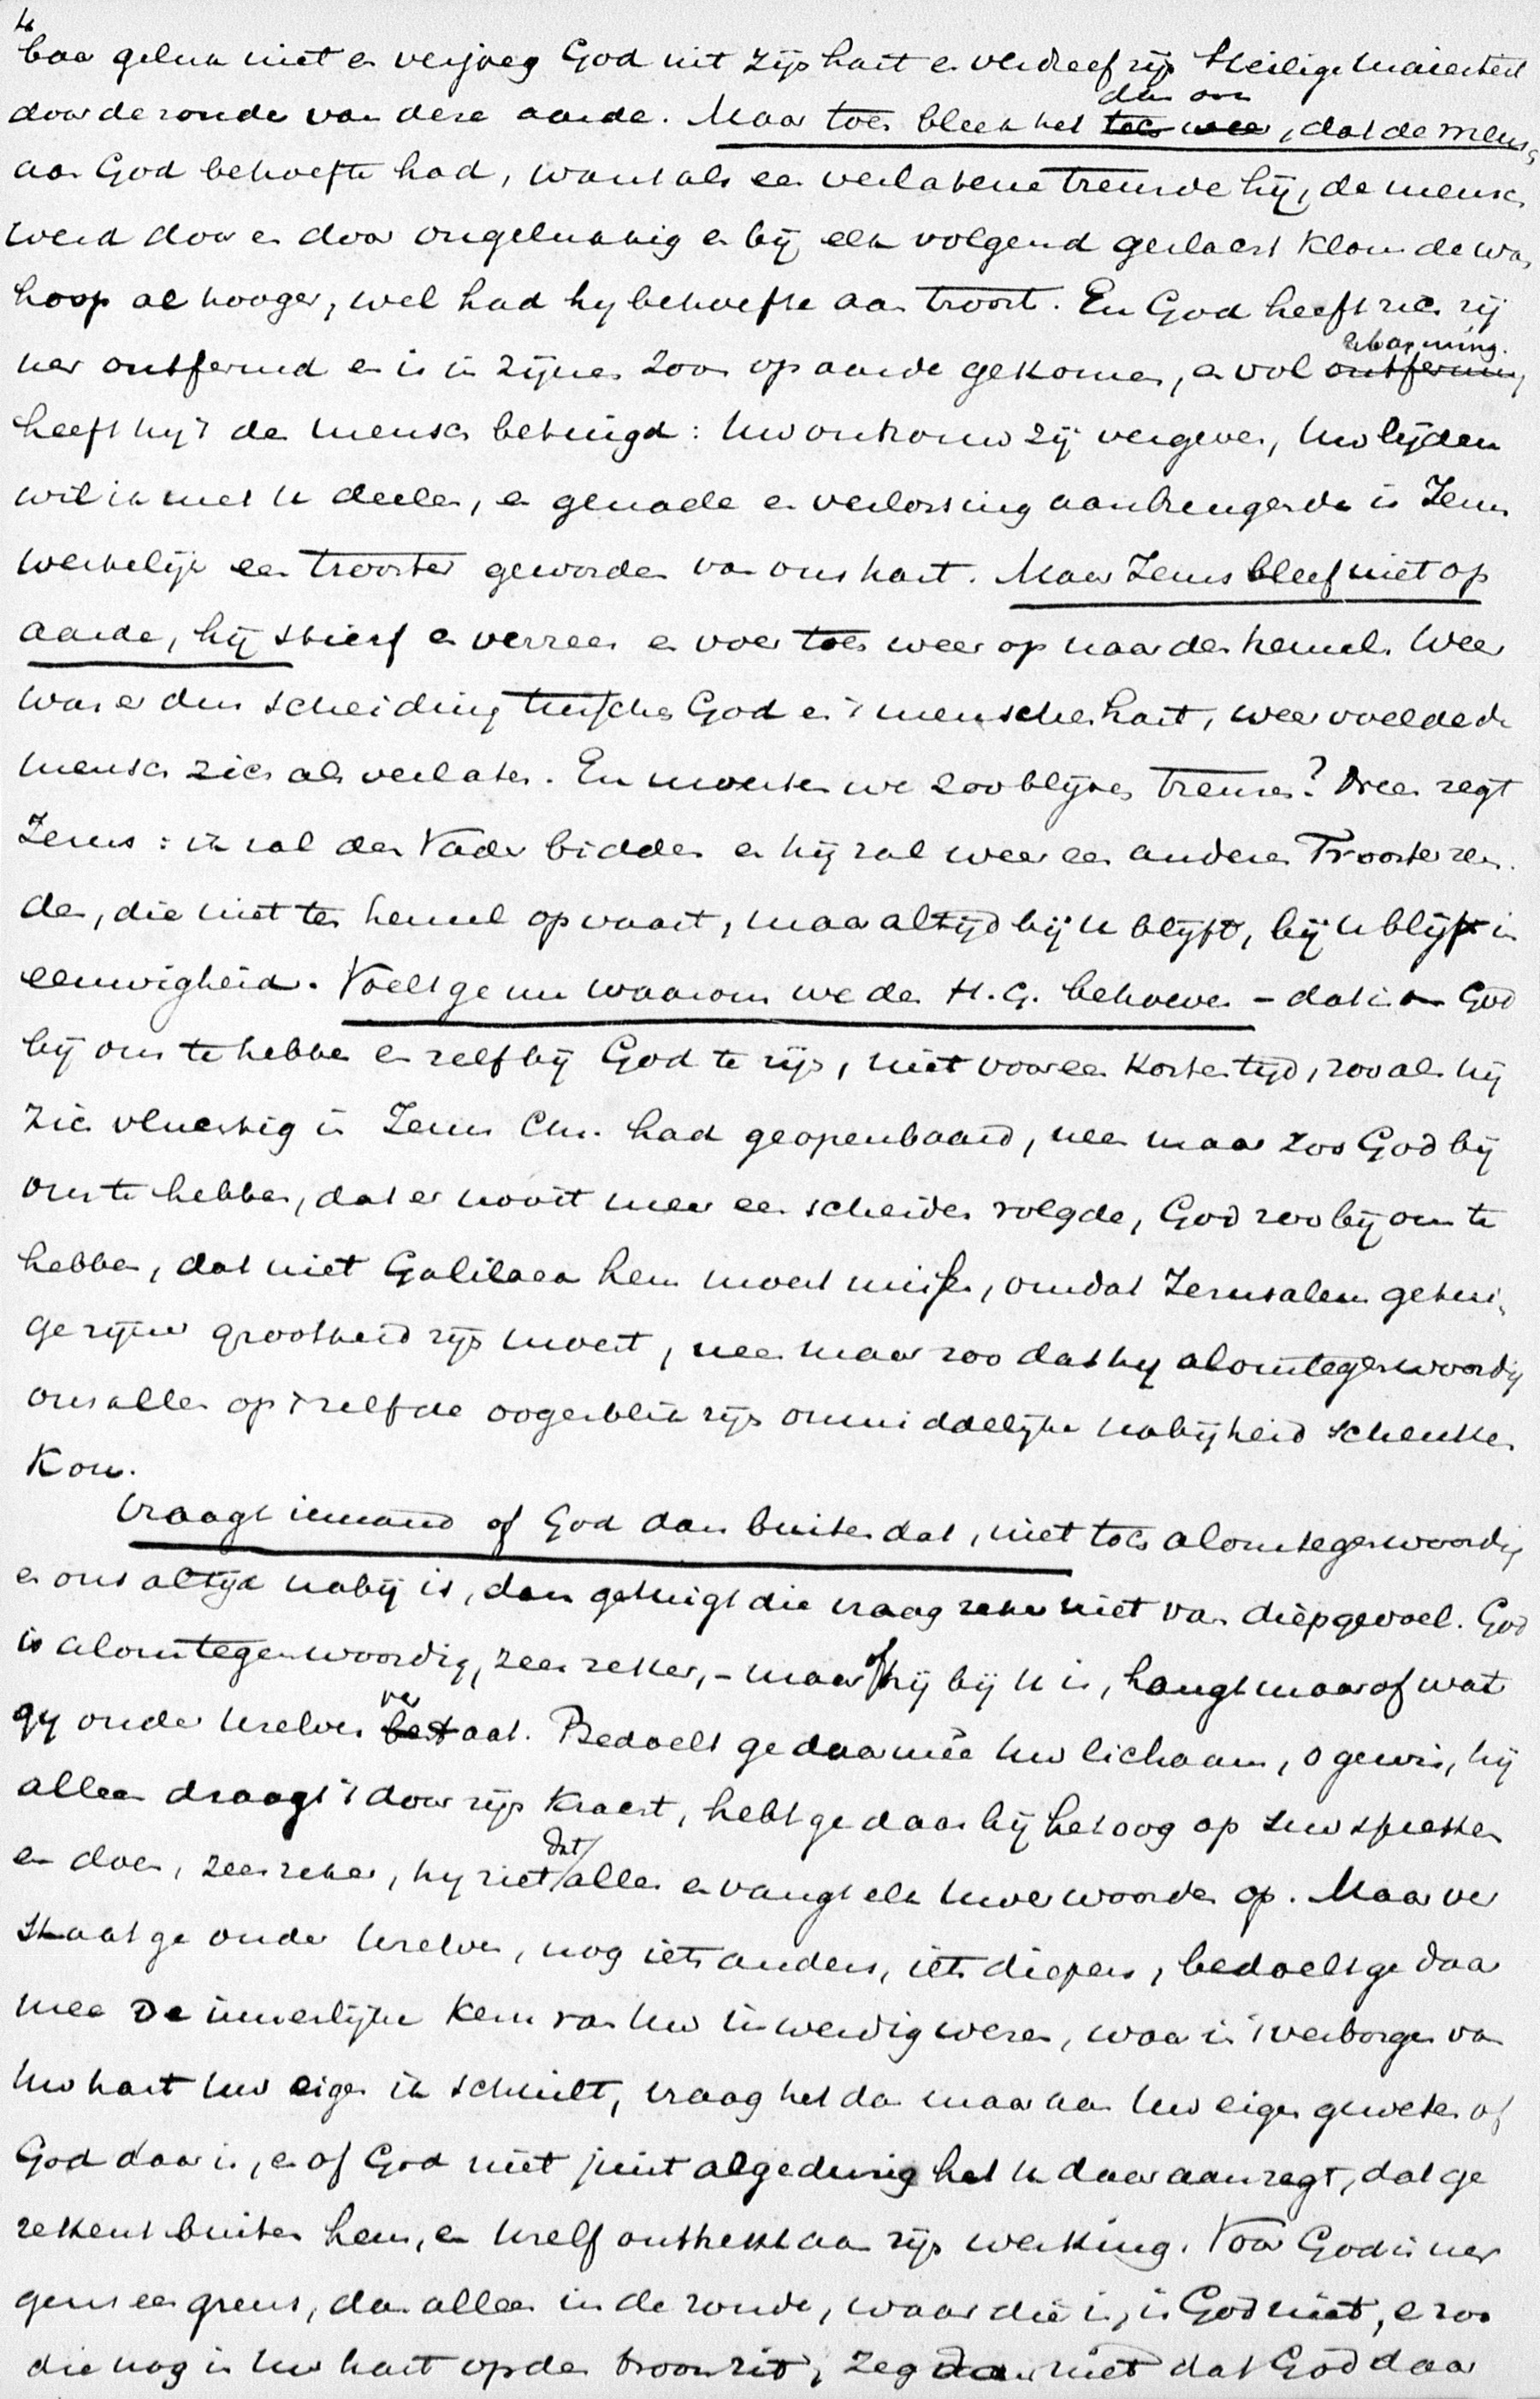 4
baar geluk niet en verjoeg God uit zijn hart en verdreef zijn Heilige Majesteit
door de zonde van deze aarde. Maar toen bleek het toch weer dan ook, dat de mensch
aan God behoefte had, want als een verlatene treurde hij, de mensch
werd door en door ongelukkig en bij elk volgend geslacht klom de wan
hoop al hooger, wel had hy behoefte aan troost. En God heeft zich zij
ner ontfermd en is in zijnen Zoon op aarde gekomen, en vol ontferming erbarming
heeft hij 't den mensch betuigd: Uw ontrouw zij vergeven, Uw lijden
wil ik met U deelen, en genade en verlossing aanbrengende is Jezus
werkelijk een trooster geworden van ons hart. Maar Jezus bleef niet op
aarde, hij stierf en verrees en voer toen weer op naar den hemel. Weer
was er dus scheiding tusschen God en 't menschenhart, weer voelde de
mensch zich als verlaten. En moesten we zoo blijven treuren? Neen zegt
Jezus: ik zal den Vader bidden en hij zal weer een anderen Trooster zen
den, die niet ten hemel opvaart, maar altijd bij U blijft, bij U blijft in
eeuwigheid. Voelt ge nu waarom we den H.G. behoeven - dat is om God
bij ons te hebben en zelf bij God te zijn, niet voor een korten tijd, zooals hij
zich vluchtig in Jezus Chr. had geopenbaard, neen maar zoo God bij
ons te hebben, dat er nooit meer een scheiden volgde, God zoo bij ons te
hebben, dat niet Galilaea hem moest missen, omdat Jerusalem getui
ge zijner grootheid zijn moest, neen maar zoo dat hy alomtegenwoordig
ons allen op 't zelfde oogenblik zijn onmiddelijke nabijheid schenken
kon.
Vraagt iemand of God dan buiten dat, niet toch alomtegenwoordig
en ons altijd nabij is, dan getuigt die vraag zeker niet van diep gevoel. God
is alomtegenwoordig, zeer zeker, - maar of hij bij U is, hangt maar af wat
gy onder Uzelven bestaat ver. Bedoelt ge daarmêe Uw lichaam, o gewis, hij
alleen draagt 't door zijn kracht, hebt ge daarbij het oog op Uw spreken
en doen, zeer zeker, hy ziet dat alles en vangt elk Uwer woorden op. Maar ver
staat ge onder Uzelven, nog iets anders, iets diepers, bedoelt ge daar
mee de innerlijke kern van Uw inwendig wezen, waar in 't verborgen van
Uw hart Uw eigen ik schuilt, vraag het dan maar aan Uw eigen geweten of
God daar is, en of God niet juist algedurig het U daar aanzegt, dat ge
rekent buiten hem, en Uzelf onttrekt aan zijn werking. Voor God is ner
gens een grens, dan alleen in de zonde, waar die is, is God niet, en zoo
die nog in Uw hart op den troon zit, zeg dan niet dat God daar